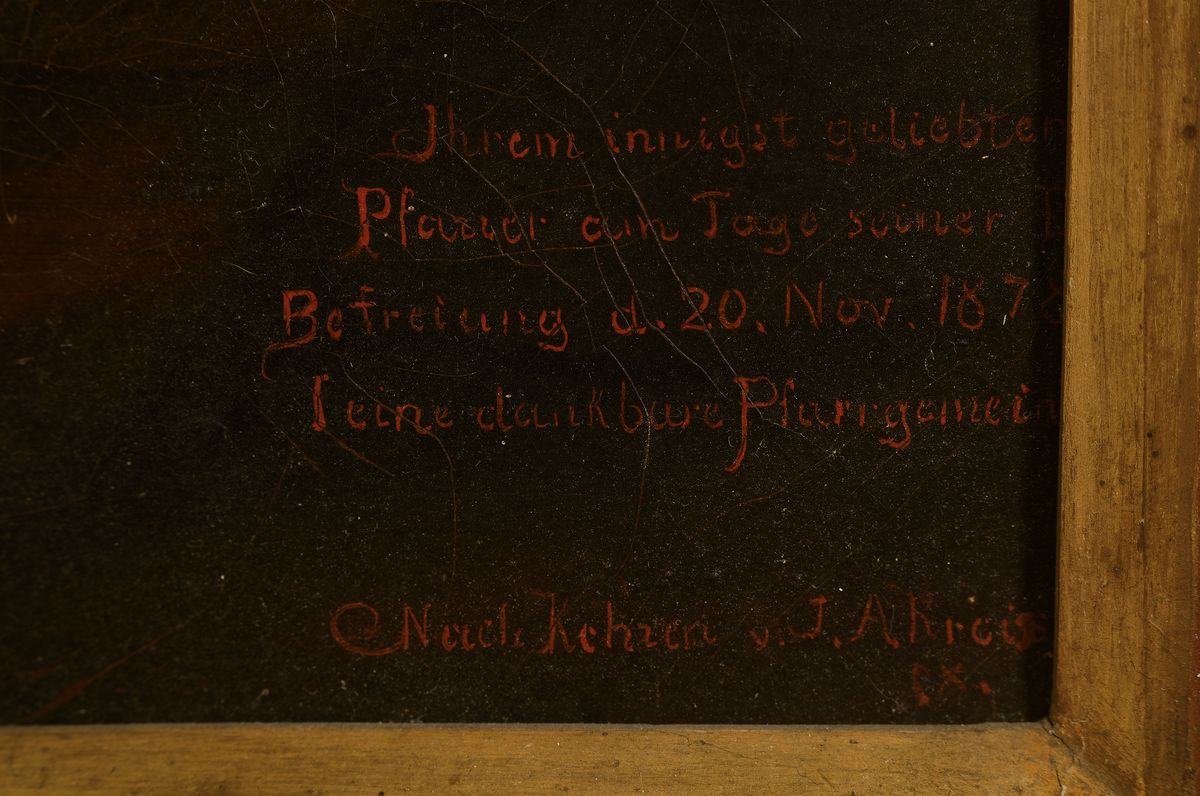 Ihrem innigst geliebten
Pfarrer am Tage seiner
Befreiung d. 20. Nov. 1878
Seine dankbare Pfarrgemein
Nach Kehren v. J. A Kreis
px.